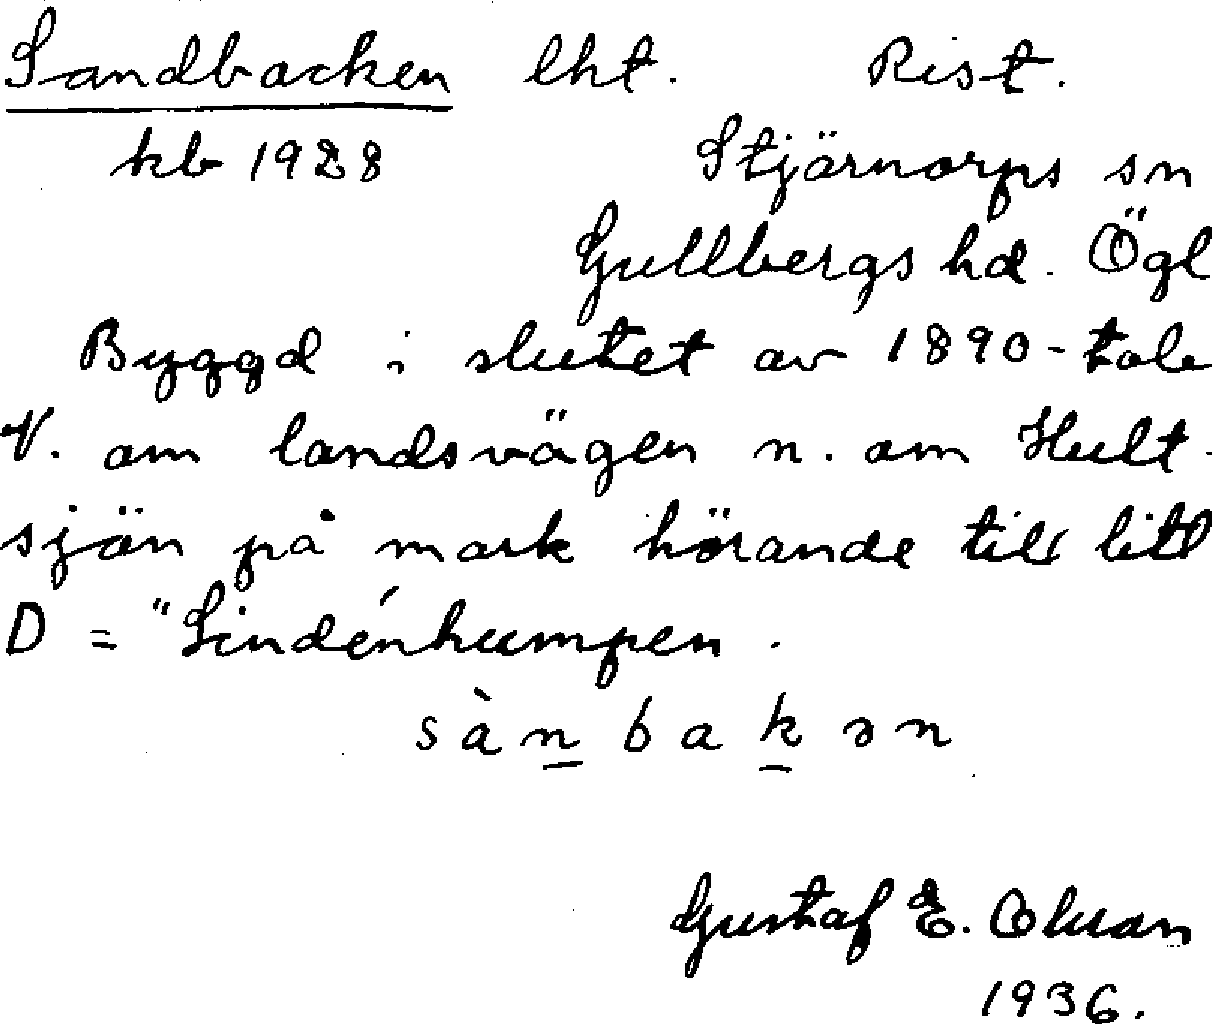 Sandbacken lht. Rist.
kb 1928 Stjärnorps sn
Gullbergs hd. Ögl
Byggd i slutet av 1890-tale
V. om landsvägen n. om Hult-
sjön på mark hörande till litt
D = "Lindénhumpen.
sànbakən
Gustaf E. Olsson
1936.